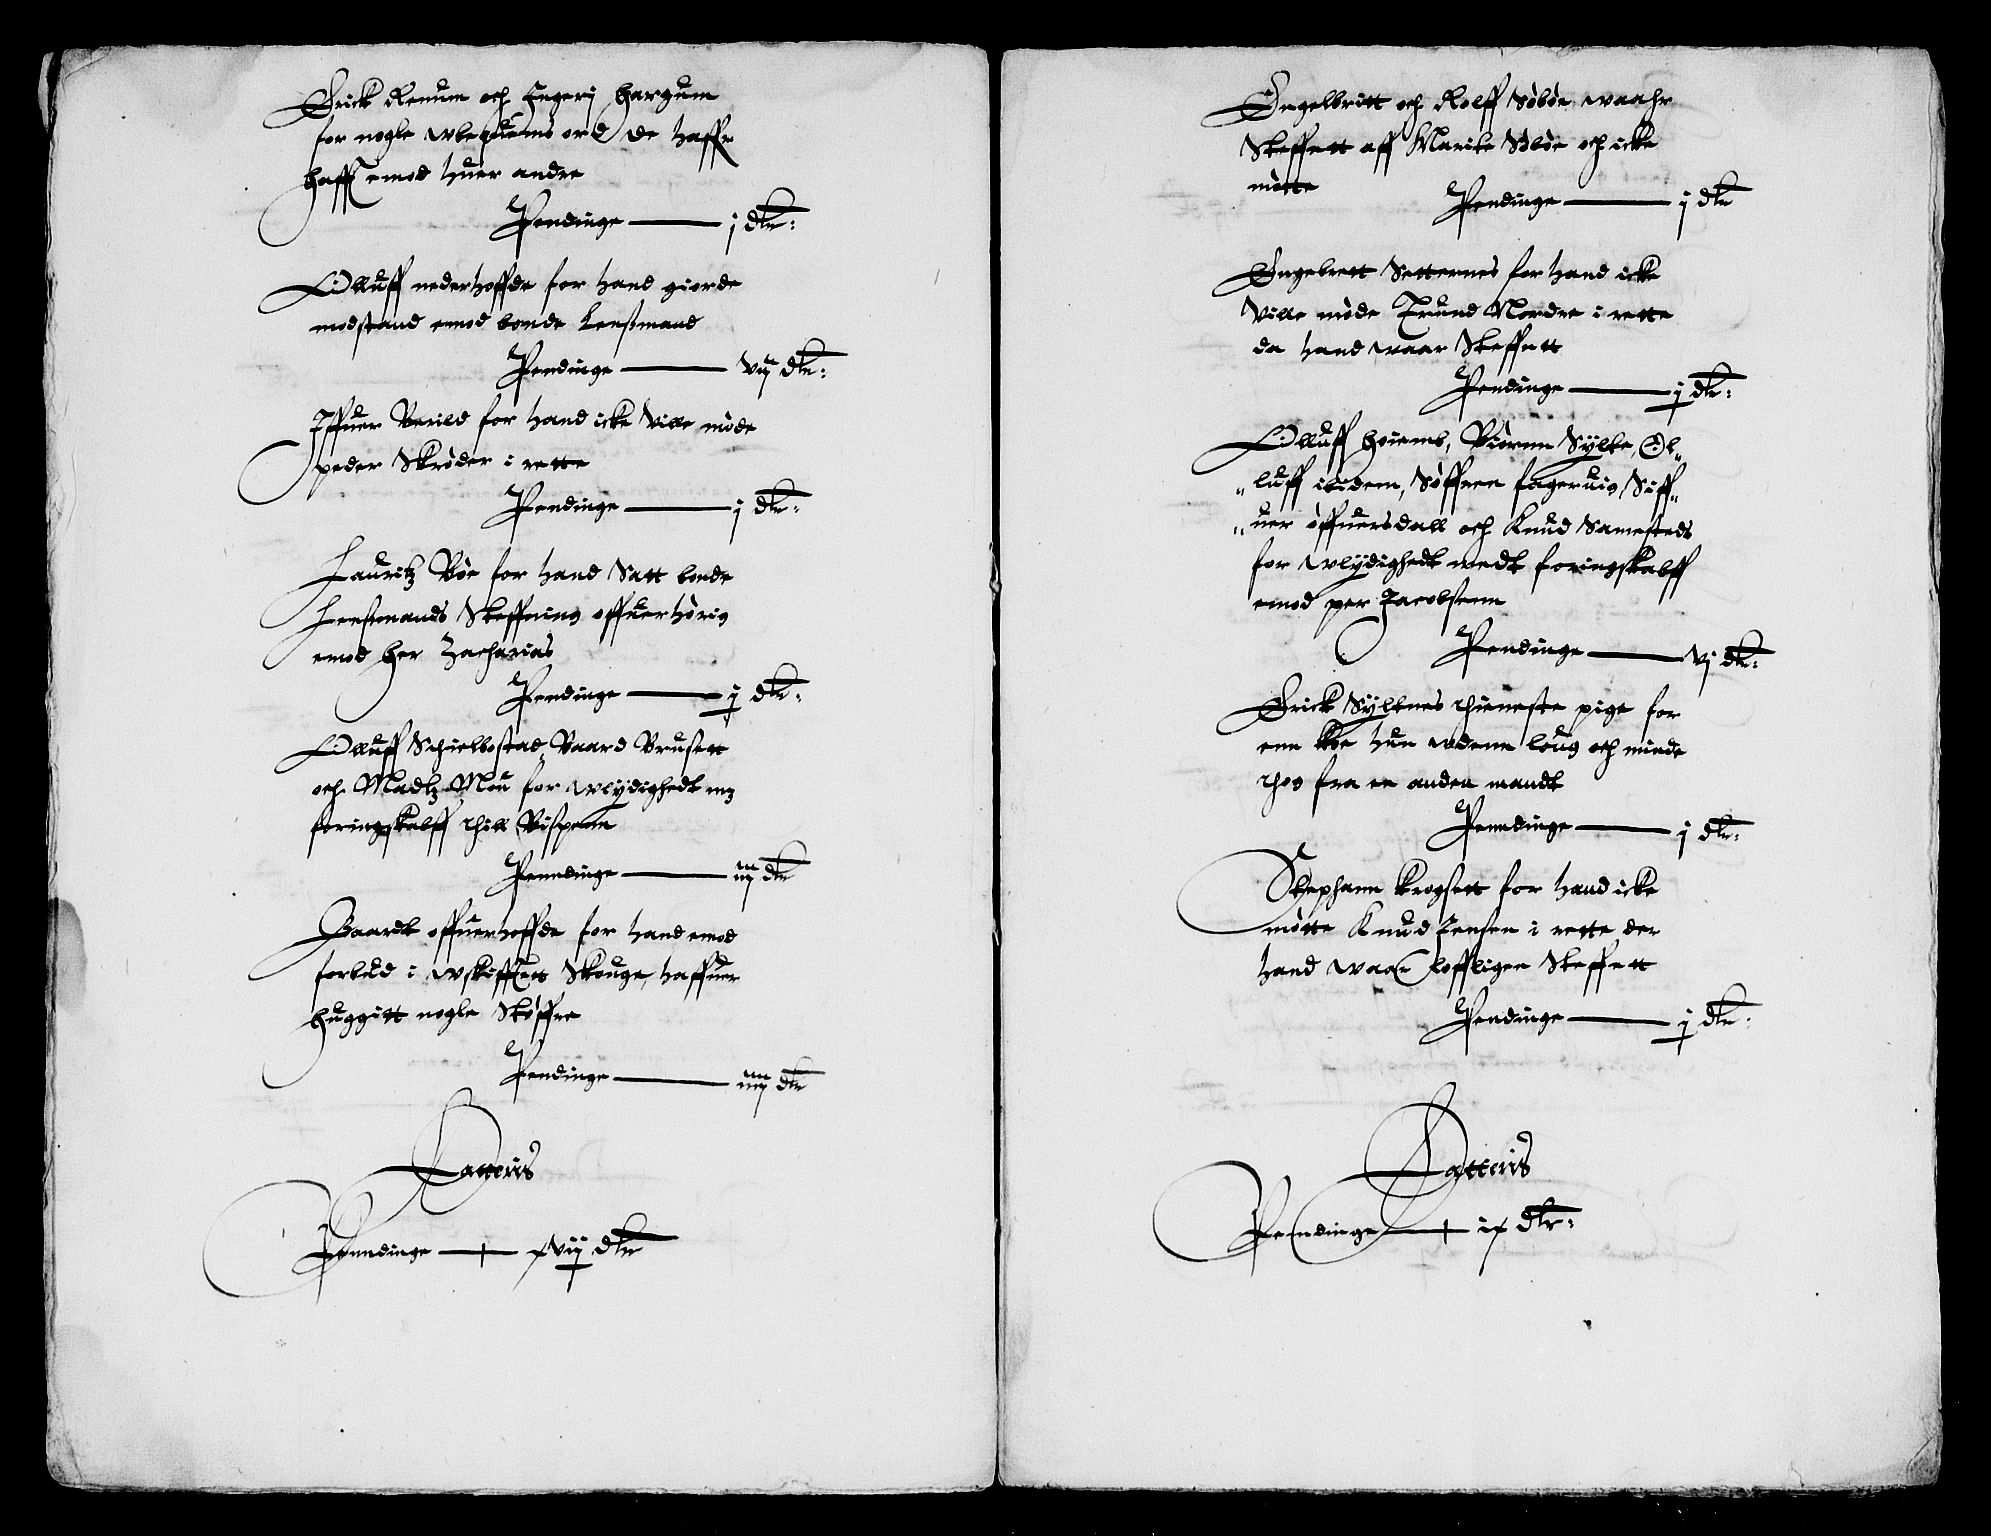 Erick Renum och Ingerj Hargum
for nogle wbequems ord de haffr
hafft emod huer andre
Pendinge — j dlr:
Olluff nederhoffde for hand giorde
modstand emod bonde Lensmand
Pendinge — vij dlr:
Iffuer Verild for hand icke ville møde
peder Skrøder i rette
Pendinge — j dlr:
Lauritz Bøe for hand Satt bonde
Lensmands Steffning offuerhørig
emod her Zacharias
Pendinge — j dlr:
Olluff Schielbostad, Baard Brusett
och Madtz Mou for wlydighedt mz
foringskalff thill Bispenn
Penndinge — iij dlr
Baardt offuerhoffde for hand emod
forbud i wskifftett Skouge, haffuer
huggitt nogle Støffre
Pendinge — iiij dlr
Latteris
Penndinge — xvij dlr
Engelbritt och Rolff Søbøe waahr
Steffnett aff Marite Søbøe och icke
møtte
Pendinge — j dlr
Engebrett Setternes for hand icke
Ville møde Trund Nordre i rette
da hand waar Steffnett
Pendinge — j dlr:
Olluff hoiemb, Biørnn Sylte, Ol„
„luff ibidem, Søffren fageruig, Siff„
„uer øffuersdall och Knud Samesteds
for wlydighedt medt foringskalff
emod per Jacobsenn
Pendinge — vj dlr:
Erick Syltnes thieneste pige for
enn Koe hun wdenn loug och minde
thog fra en anden mandt
Penndinge — j dlr:
Stephann Krogsett for hand icke
møtte Knud Jensen i rette der
hand waar loffligen Steffnett
Pendinge — j dlr:
Latteris
Penndinge — ix dlr: